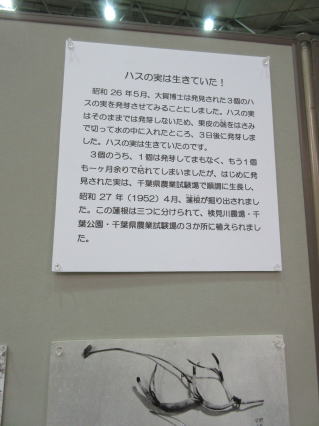 ハスの実は生きていた！
昭和 26 年5月、大賀博士は発見された3個のハ
スの実を発芽させてみることにしました。ハスの実
はそのままでは発芽しないため、果皮の端をはさみ
で切って水の中に入れたところ、3日後に発芽しま
した。ハスの実は生きていたのです。
3個のうち、1個は発芽してまもなく、もう1個
も一ヶ月余りで枯れてしまいましたが、はじめに発
見された実は、千葉県農業試験場で順調に生長し、
昭和 27 年（1952）4月、蓮根が掘り出されまし
た。この蓮根は三つに分けられて、検見川農場・千
葉公園・千葉県農業試験場の3か所に植えられまし
た。